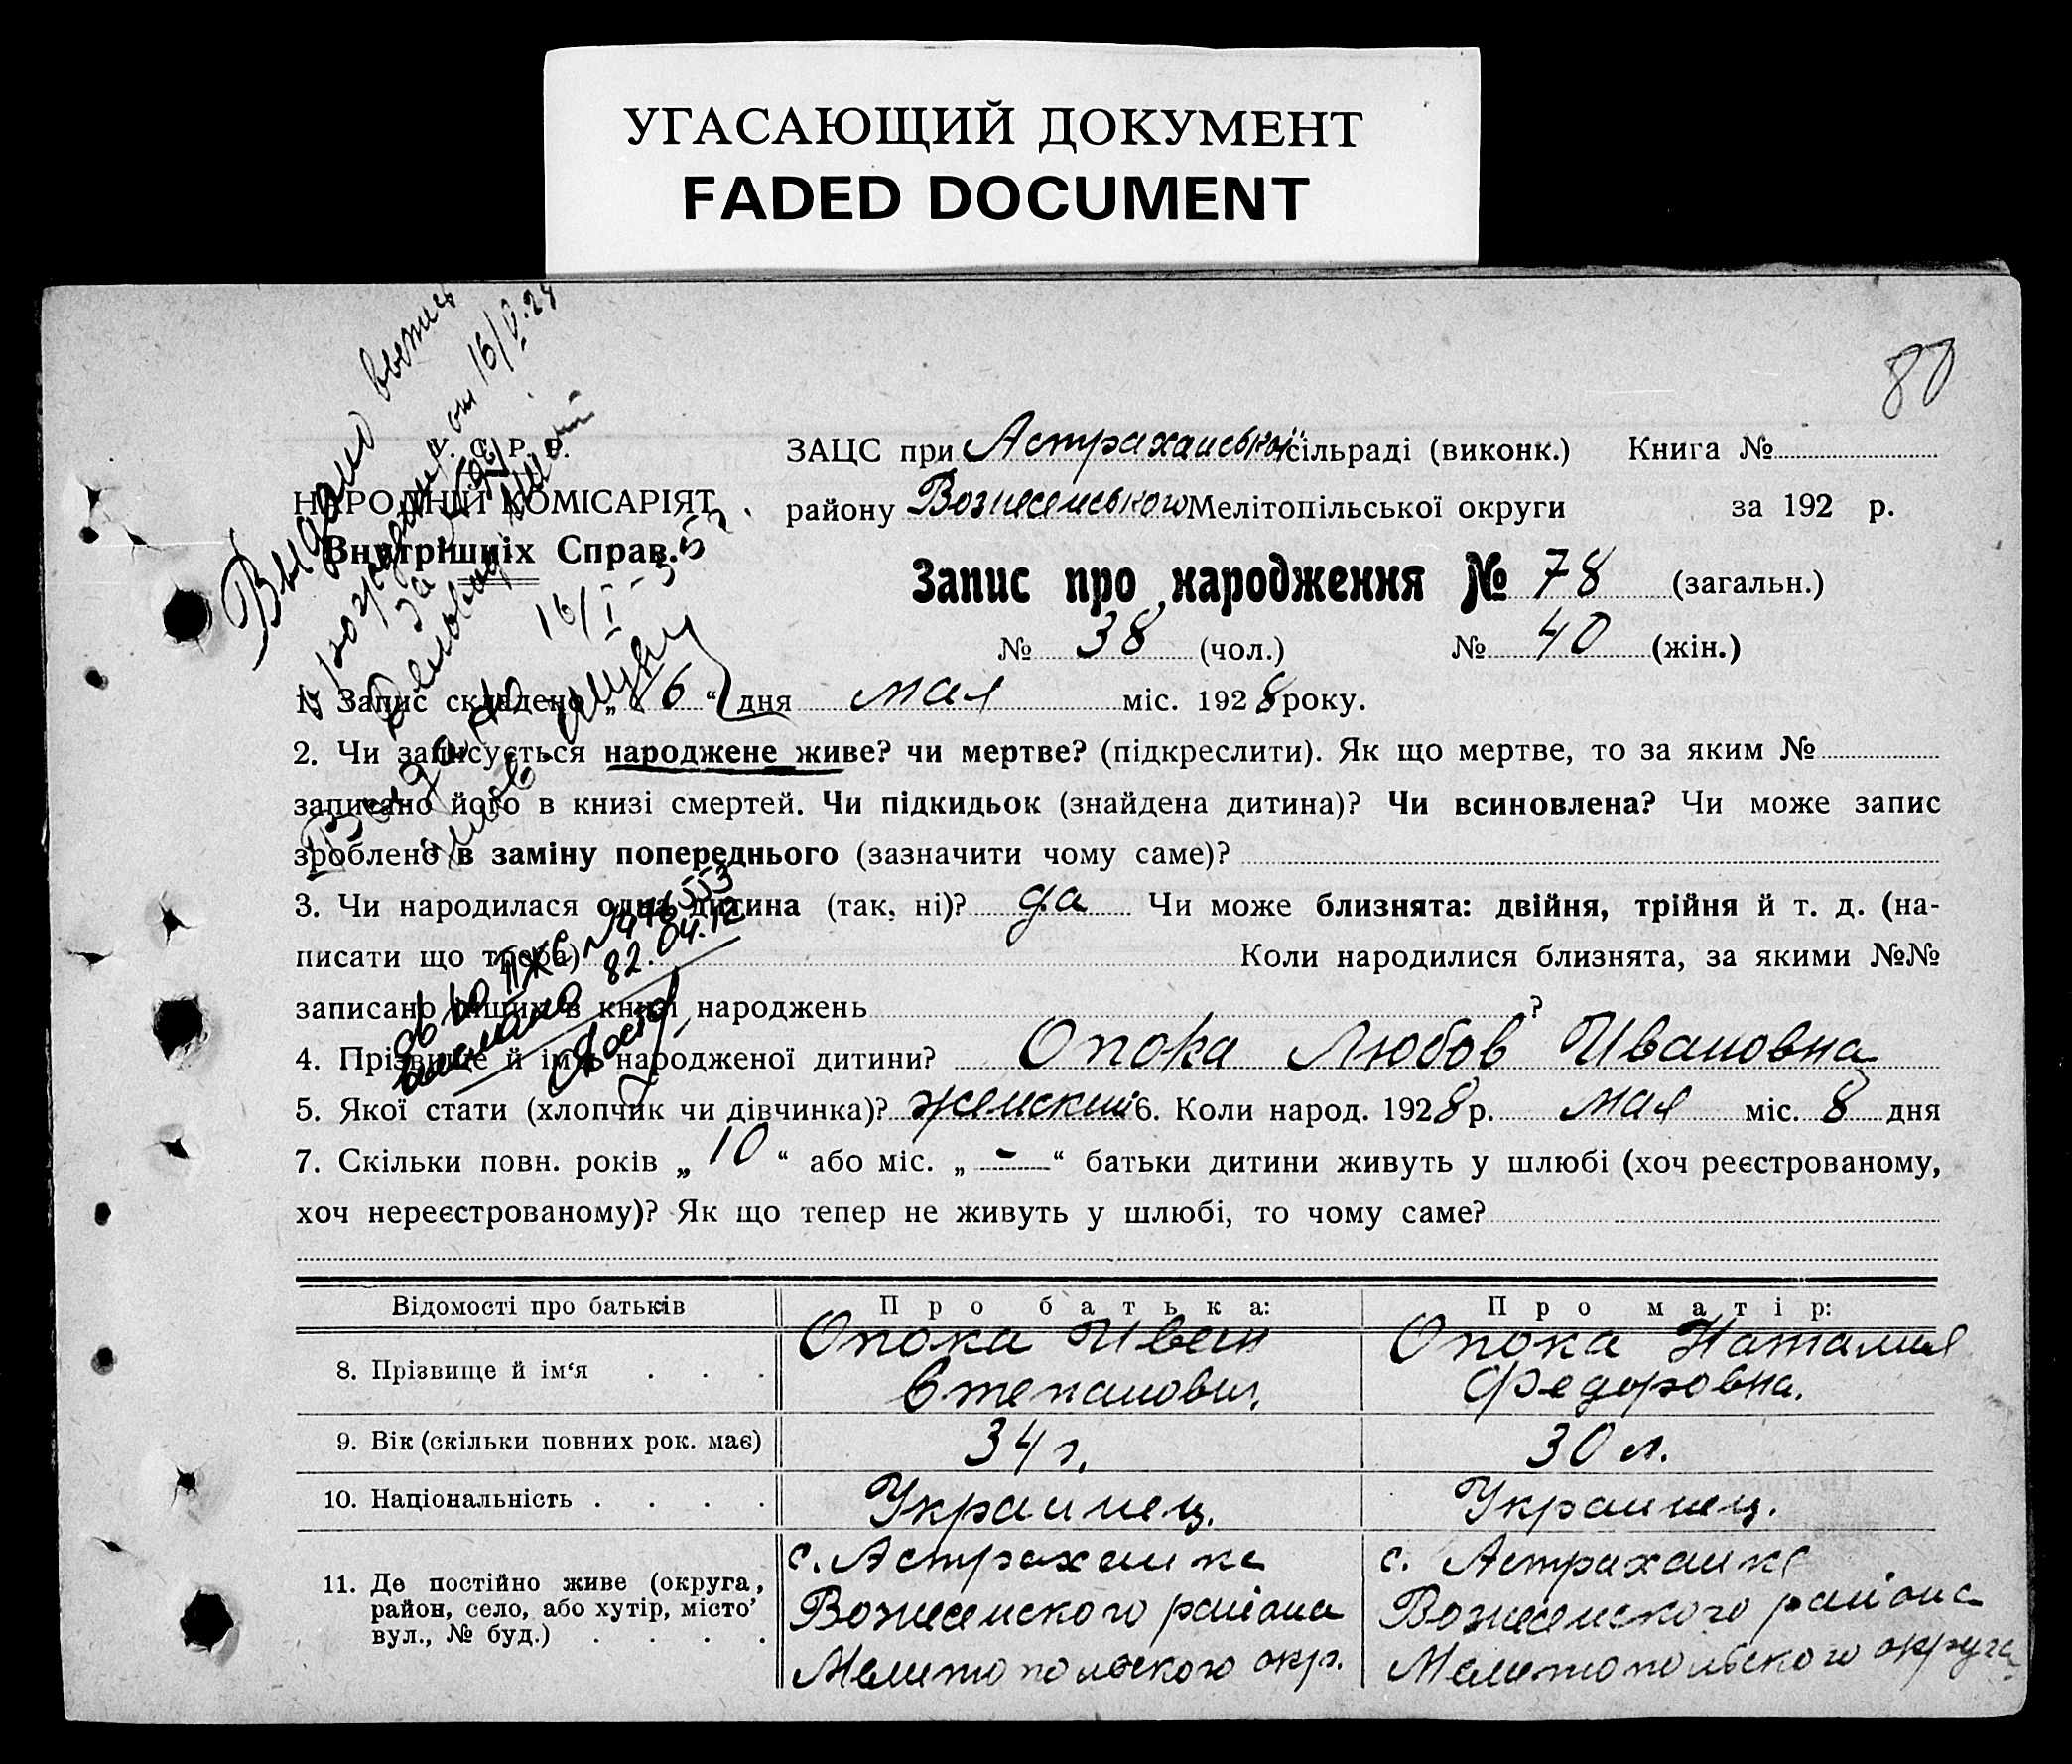 УГАСАЮЩИЙ ДОКУМЕНТ
FADED DOCUMENT
80
С. Р. Р.
НАРОДНІЙ КОМІСАРІЯТ
Внутрішніх Справ.
ЗАЦС при Астраханської сільраді (виконк.) Книга №
району Вознесенського Мелітопільської округи за 192 р.
Запис про народження № 78 (загальн.)
№ 38 (чол.) № 40 (жін.)
Выдано
о рожден. от 16/V-24
16/I-55
1. Запис складено „16“ дня мая міс. 1928 року.
2. Чи записується народжене живе? чи мертве? (підкреслити). Як що мертве, то за яким №
записано його в книзі смертей. Чи підкидьок (знайдена дитина)? Чи всиновлена? Чи може запис
зроблено в заміну попереднього (зазначити чому саме)?
3. Чи народилася одна дитина (так, ні)? да Чи може близнята: двійня, трійня й т. д. (на-
писати що треба) Коли народилися близнята, за якими №№
записано інших в книзі народжень ?
№ 446553
82.04.12
4. Прізвище й ім'я народженої дитини? Опока Любов Ивановна
5. Якої стати (хлопчик чи дівчинка)? женский 6. Коли народ. 1928 р. мая міс. 8 дня
7. Скільки повн. років „10“ або міс. „-“ батьки дитини живуть у шлюбі (хоч реєстрованому,
хоч нереєстрованому)? Як що тепер не живуть у шлюбі, то чому саме?
Відомості про батьків Про батька: Про матір:
8. Прізвище й ім'я . . . Опока Иван Степанович. Опока Наталия Федоровна.
9. Вік (скільки повних рок. має) 34 г. 30 л.
10. Національність . . . . Украинец. Украинец.
11. Де постійно живе (округа, с. Астраханка с. Астраханка
район, село, або хутір, місто' Вознесенского района Вознесенского района
вул., № буд.) . . . . Мелитопольского окр. Мелитопольского округа